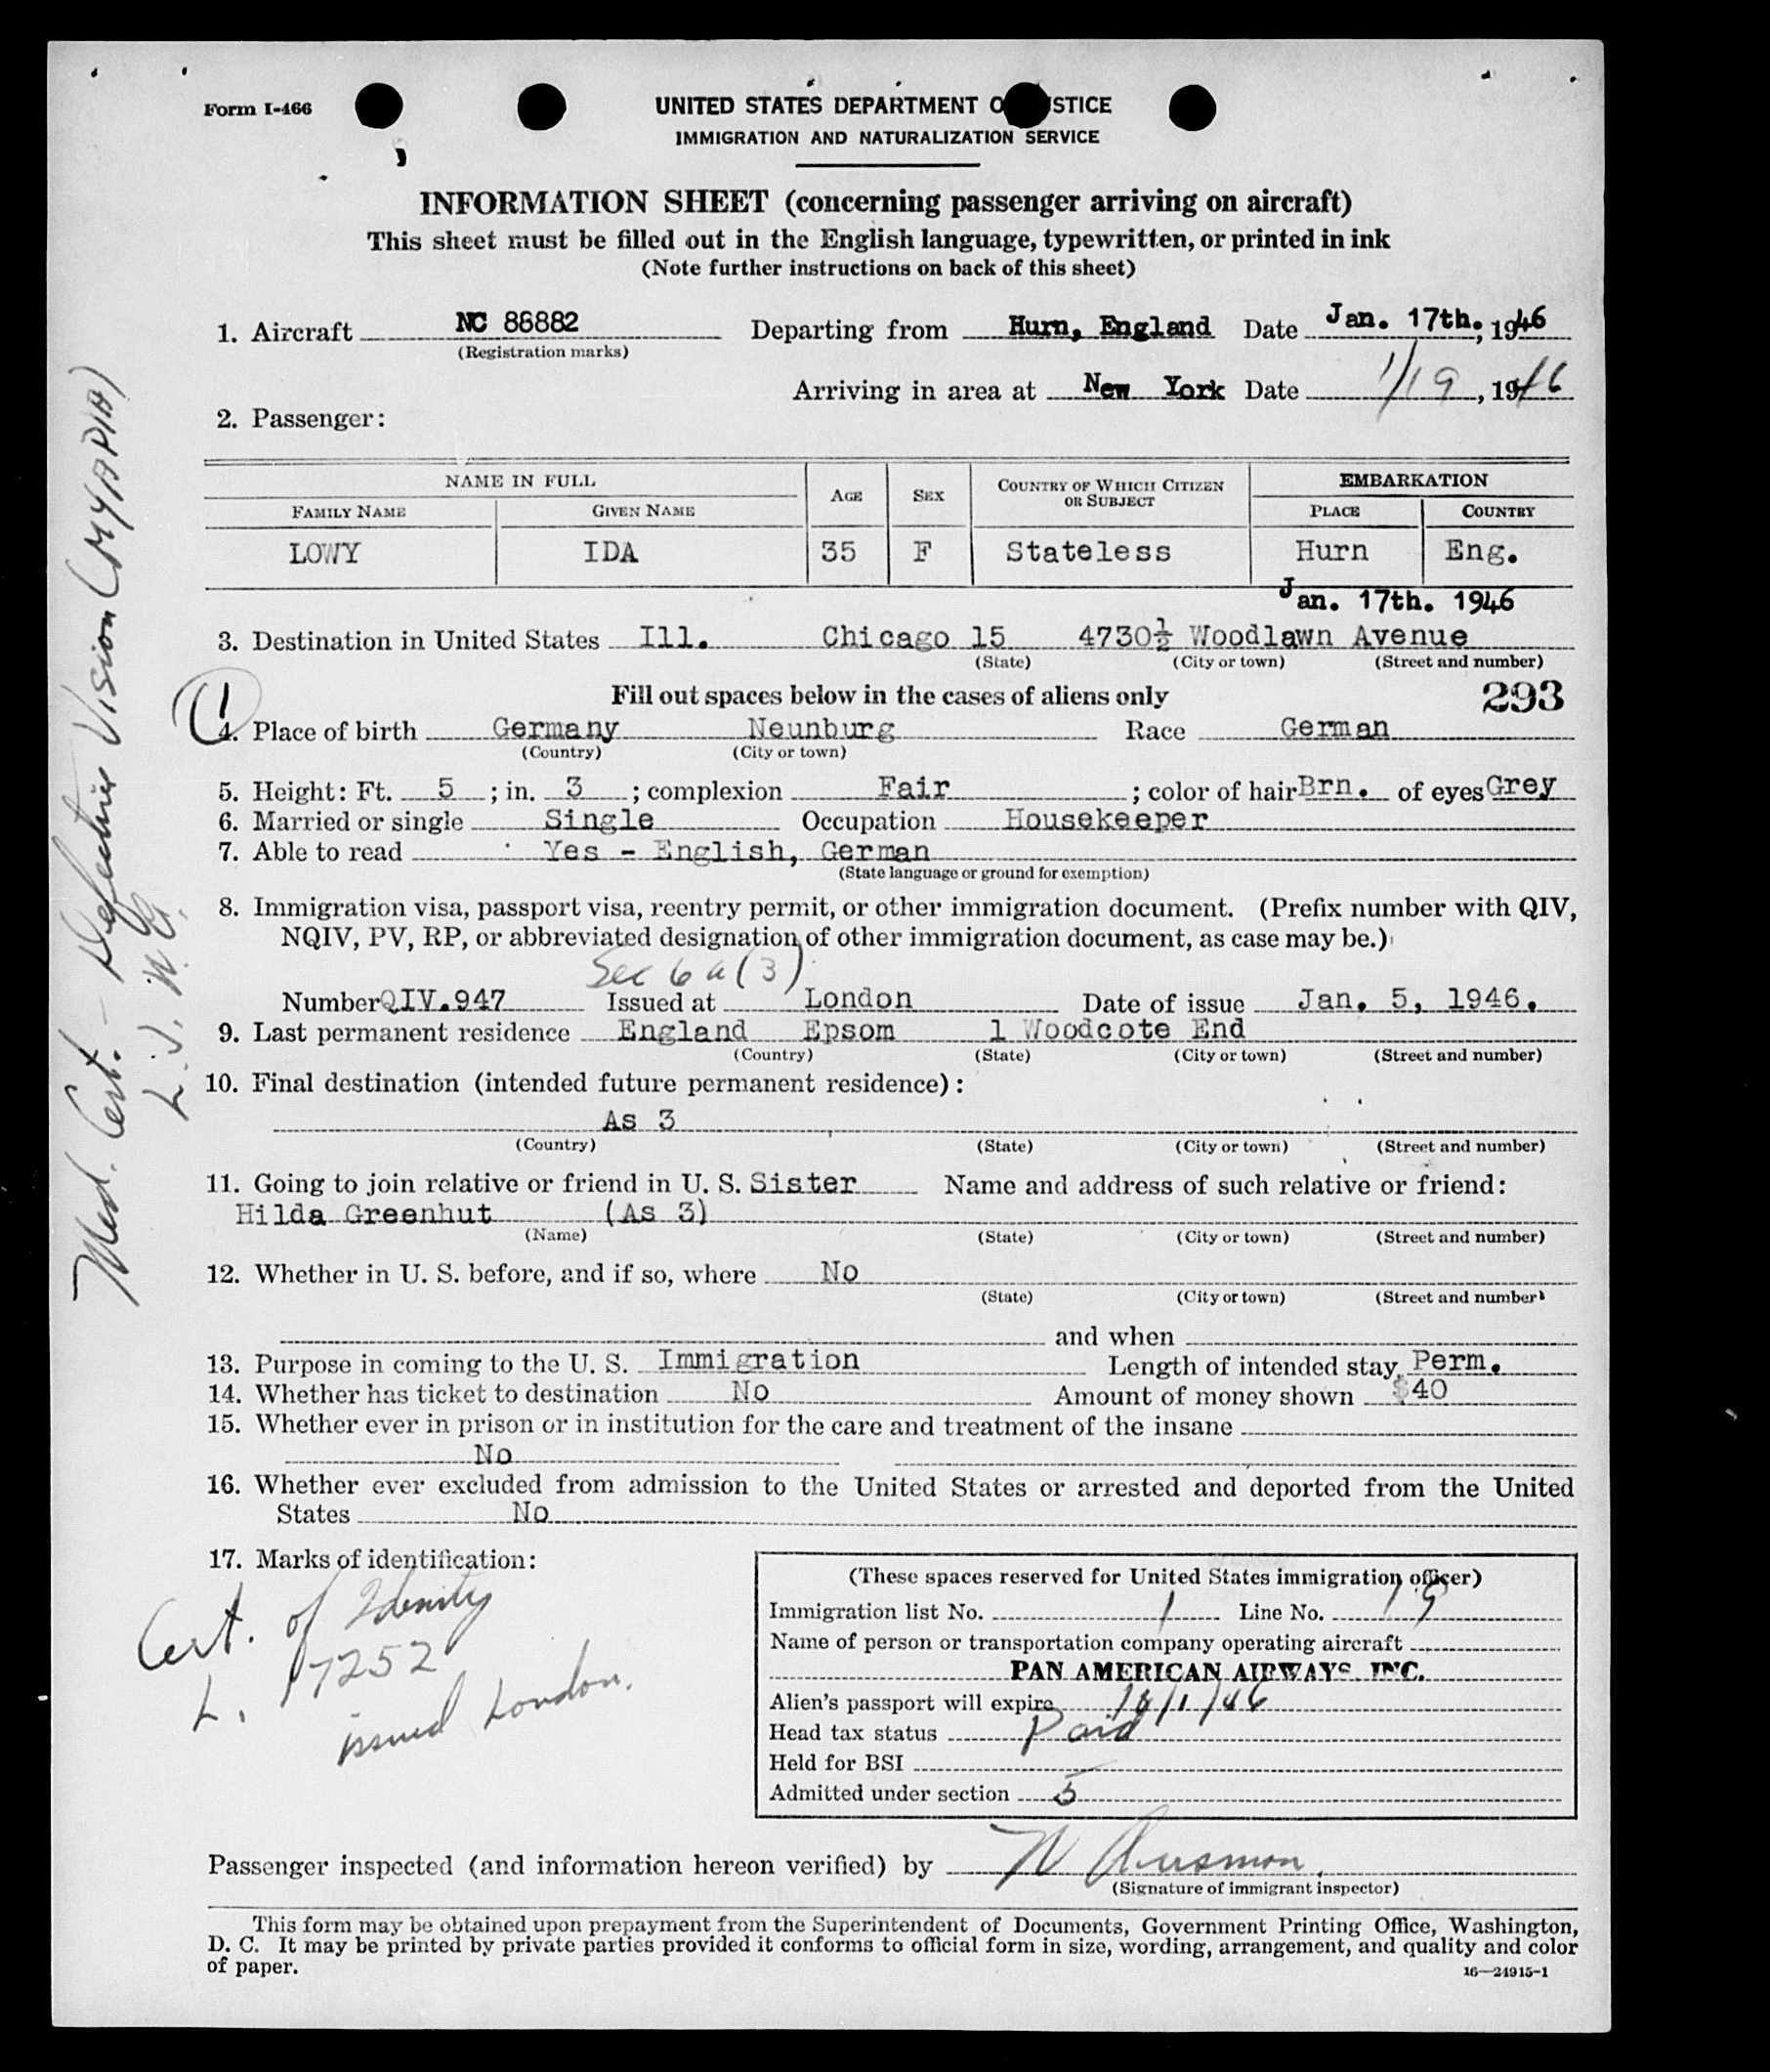 Form I-466
UNITED STATES DEPARTMENT O STICE
IMMIGRATION AND NATURALIZATION SERVICE
INFORMATION SHEET (concerning passenger arriving on aircraft)
This sheet must be filled out in the English language, typewritten, or printed in ink
(Note further instructions on back of this sheet)
1. Aircraft NC 86882 Departing from Hurn, England Date Jan. 17th, 1946
(Registration marks)
Arriving in area at New York Date 1/19, 1946
2. Passenger:
NAME IN FULL AGE SEX COUNTRY OF WHICH CITIZEN OR SUBJECT EMBARKATION
FAMILY NAME GIVEN NAME PLACE COUNTRY
LOWY IDA 35 F Stateless Hurn Eng.
Jan. 17th. 1946
3. Destination in United States Ill. Chicago 15 4730½ Woodlawn Avenue
(State) (City or town) (Street and number)
Fill out spaces below in the cases of aliens only 293
1
4. Place of birth Germany Neunburg Race German
(Country) (City or town)
5. Height: Ft. 5 ; in. 3 ; complexion Fair ; color of hair Brn. of eyes Grey
6. Married or single Single Occupation Housekeeper
7. Able to read Yes - English, German
(State language or ground for exemption)
8. Immigration visa, passport visa, reentry permit, or other immigration document. (Prefix number with QIV,
NQIV, PV, RP, or abbreviated designation of other immigration document, as case may be.)
Sec 6 a (3)
Number QIV.947 Issued at London Date of issue Jan. 5, 1946.
9. Last permanent residence England Epsom 1 Woodcote End
(Country) (State) (City or town) (Street and number)
10. Final destination (intended future permanent residence):
As 3
(Country) (State) (City or town) (Street and number)
11. Going to join relative or friend in U. S. Sister Name and address of such relative or friend:
Hilda Greenhut (As 3)
(Name) (State) (City or town) (Street and number)
12. Whether in U. S. before, and if so, where No
(State) (City or town) (Street and number)
and when
13. Purpose in coming to the U. S. Immigration Length of intended stay Perm.
14. Whether has ticket to destination No Amount of money shown $40
15. Whether ever in prison or in institution for the care and treatment of the insane
No
16. Whether ever excluded from admission to the United States or arrested and deported from the United
States No
17. Marks of identification:
Cert. of Idenity
L. 17252
issued London.
(These spaces reserved for United States immigration officer)
Immigration list No. 1 Line No. 19
Name of person or transportation company operating aircraft
PAN AMERICAN AIRWAYS INC.
Alien's passport will expire 18/1/46
Head tax status Paid
Held for BSI
Admitted under section 5
Passenger inspected (and information hereon verified) by
(Signature of immigrant inspector)
This form may be obtained upon prepayment from the Superintendent of Documents, Government Printing Office, Washington,
D. C. It may be printed by private parties provided it conforms to official form in size, wording, arrangement, and quality and color
of paper.
16—24915-1
Med. Cert. - Defective Vision (MYAPIA)
L.J. W.G.